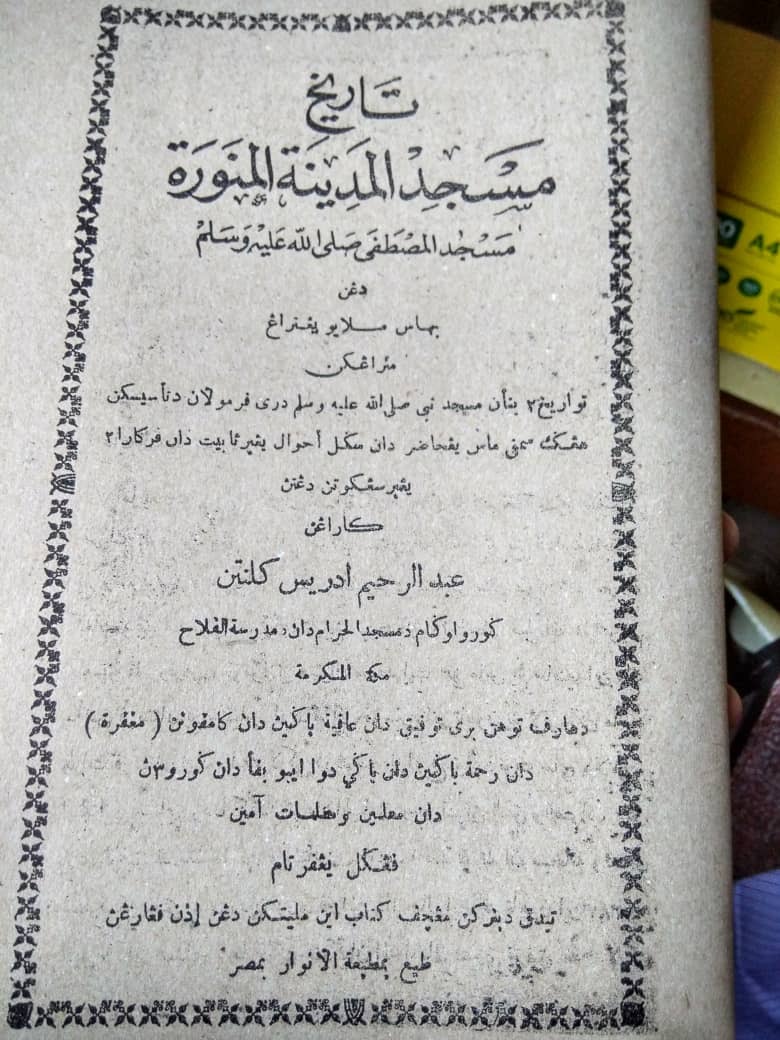 تاريخ
مسجد المدينة المنورة
مسجد المصطفى صلى الله عليه وسلم
دڠن
بهاس ملايو يڠتراڠ
منراڠكن
تواريخ٢ بنأن مسجد نبي صلى الله عليه وسلم دري فرمولان دتأسيسكن
هڤڬك سمڤي ماس يڠحاضر دان سكل أحوال يڠبرثابيت دان فركارا٢
يڠبرسڠكوتن دڠن
كاراڠن
عبد الرحيم ادريس كلنتن
ڬورو اوڬام دمسجد الحرام دان دمدرسة الفلاح
مكة المكرمة
دهارف توهن بري توفيق دان عافية باڬين دان كامفونن ( مغفرة )
دان رحمة باڬين دان باڬي دوا ايبو بفأ دان ڬورو٢ن
دان معلمين ومعلمات آمين
فڠڬل يڠفرتام
تيدق دبنركن مڠچف كتاب اين مليتكن دڠن إذن فڠارڠن
طبع بمطبعة الانوار بمصر
A4